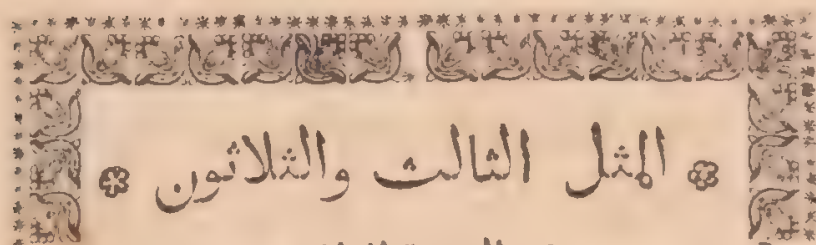 المثل الثالث والثلاثون